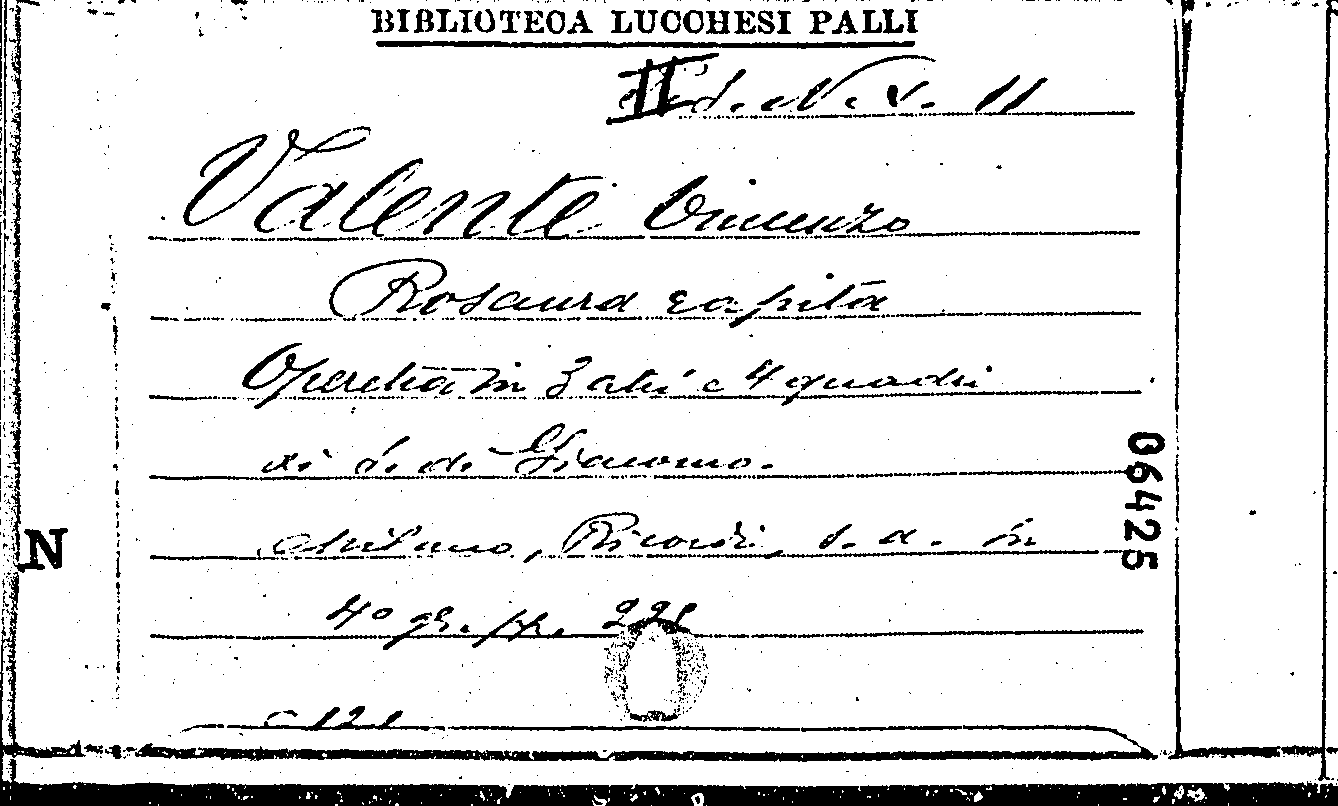 BIBLIOTECA LUCCHESI PALLI
II d. N. V. 11
Valente Vincenzo
Rosaura rapita
Operetta in 3 atti e 4 quadri
di S. di Giacomo.
Milano, Ricordi, s. a. in
4º gr. pp. 221
06425
N
C 121